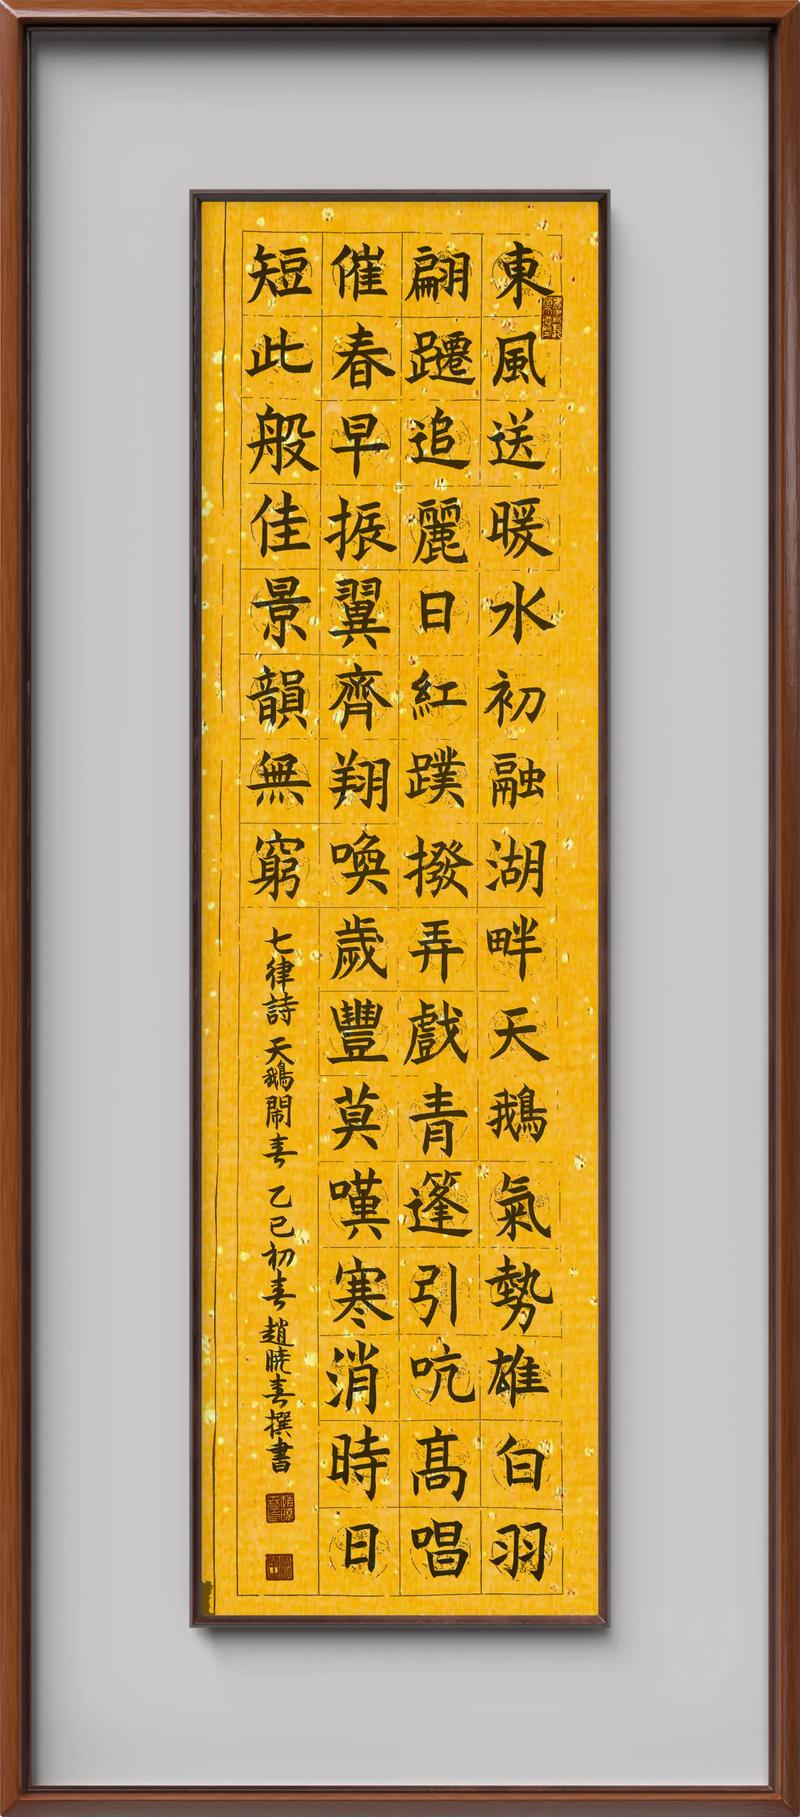 東風送暖水初融湖畔天鵝氣勢雄白羽
翩躚追麗日紅蹼撥弄戲青篷引吭高唱
催春早振翼齊翔喚歲豐莫嘆寒消時日
短此般佳景韻無窮
七律詩 天鵝鬧春 乙巳初春 趙曉春撰書